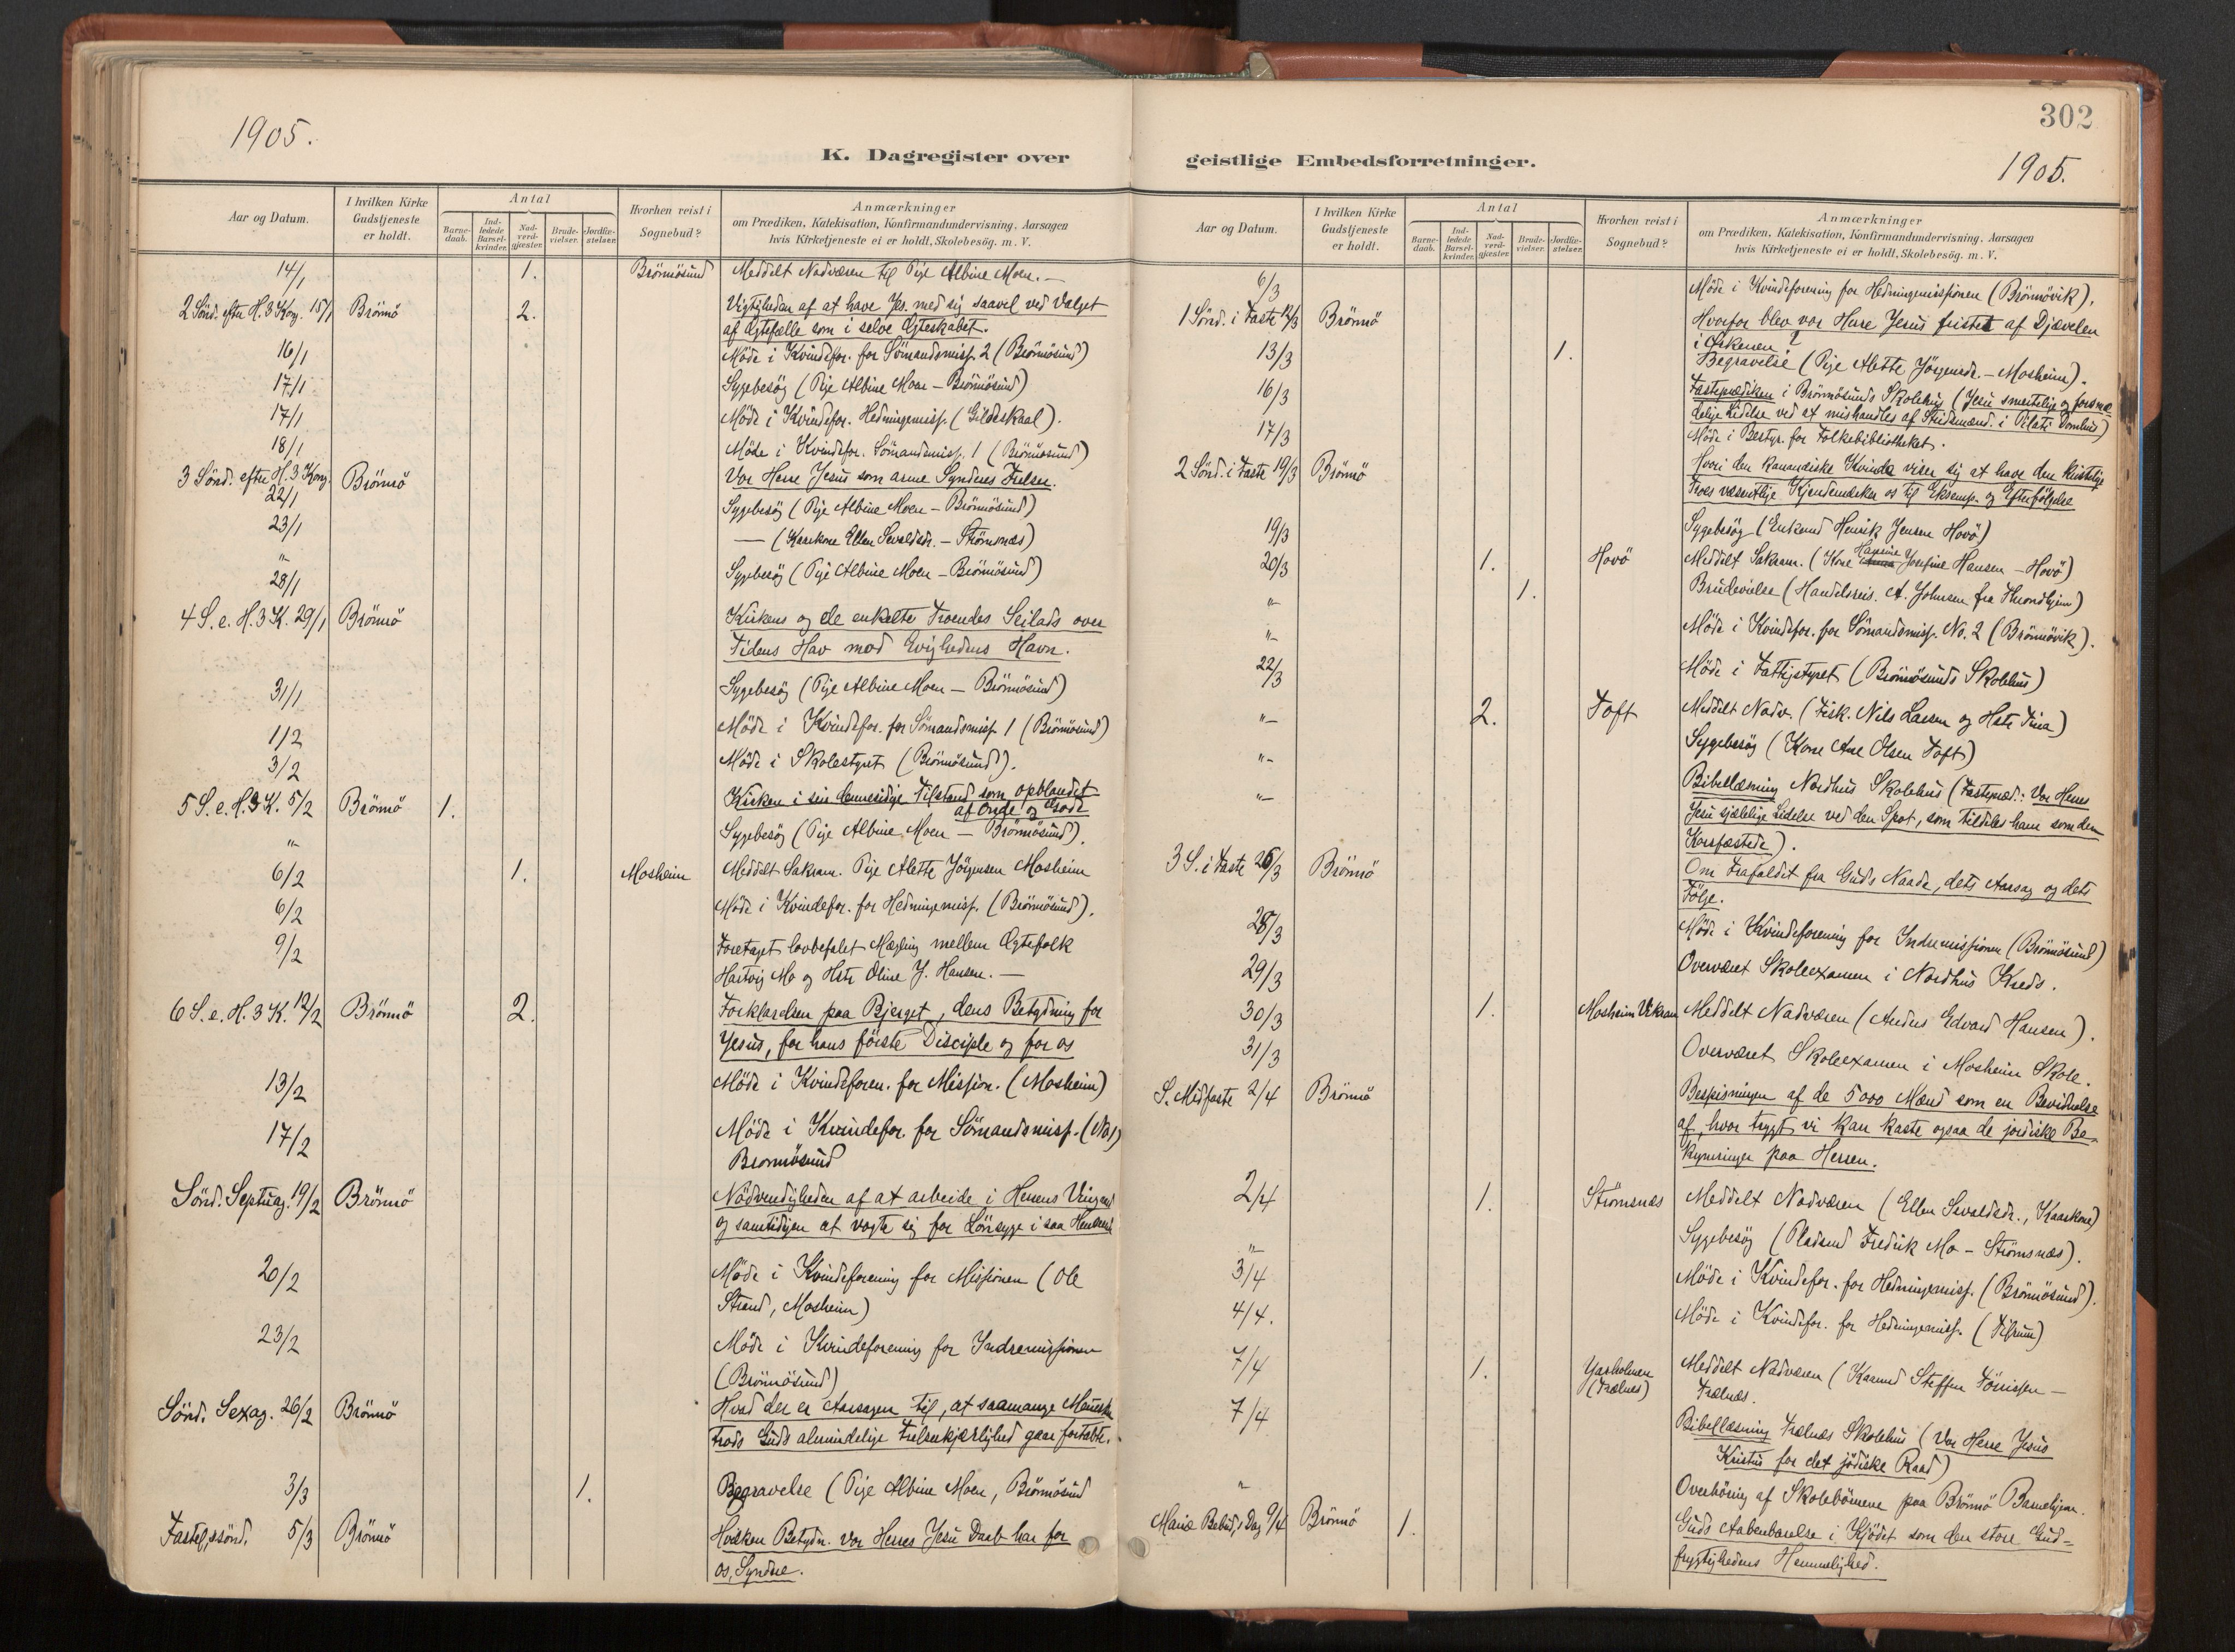 1905.
K. Dagregister over
Aar og Datum.
I hvilken Kirke Gudstjeneste er holdt.
Antal
Barne-daab.
Ind-ledede Barsel-kvinder.
Nad-verd-gjæster.
Brude-vielser.
Jordfæ-stelser.
Hvorhen reist i Sognebud?
Anmærkninger
om Prædiken, Katekisation, Konfirmandundervisning, Aarsagen
hvis Kirketjeneste ei er holdt, Skolebesög, m. V.
14/1 1. Brönnösund Meddelt Nadveren til Pige Albine Moen. —
2 Sönd. efter H. 3 Kong. 15/1 Brönnö 2. Vigtigheden af at have Jes. med sig saavel ved Valget
af Ægtefælle som i selve Ægteskabet.
16/1 Möde i Kvindefor. for Sömandsmiss. 2 (Brönnösund)
17/1 Sygebesög (Pige Albine Moen – Brönnösund)
17/1 Möde i Kvindefor. Hedningemiss. (Gildeskaal).
18/1 Möde i Kvindefor. Sömandsmiss. 1 (Brönnösund)
3 Sönd. efter H. 3 Kong. 22/1 Brönnö Vor Herre Jesus som arme Synderes Frelser.
Sygebesög (Pige Albine Moen – Brönnösund)
23/1 — (Kaarkone Ellen Sevaldsdr. – Strömsnæs)
"
28/1 Sygebesög (Pige Albine Moen – Brönnösund)
4 S. e. H. 3 K. 29/1 Brönnö Kirkens og de enkelte Troendes Seilads over
Tidens Hav mod Evighedens Havn.
31/1 Sygebesög (Pige Albine Moen – Brönnösund)
1/2 Möde i Kvindefor. for Sömandsmiss. 1 (Brönnösund)
3/2 Möde i Skolestyret (Brönnösund).
5 S. e. H. 3 K. 5/2 Brönnö 1. Kirken i sin dennesidige Tilstand som opblandet
af Onde og Gode
" Sygebesög (Pige Albine Moen – Brönnösund).
6/2 1. Mosheim Meddelt Sakram. Pige Alette Jörgensen Mosheim
6/2 Möde i Kvindefor. for Hedningemiss. (Brönnösund).
9/2 Foretaget lovbefalet Mægling mellem Ægtefolk
Hartvig Mo og Hstr. Oline J. Hansen. —
6 S. e. H. 3 K. 12/2 Brönnö 2. Forklarelsen paa Bjerget, dens Betydning for
Jesus, for hans förste Disciple og for os
13/2 Möde i Kvindeforen. for Mission. (Mosheim)
17/2 Möde i Kvindefor. for Sömandsmiss. (No 1)
Brönnösund
Sönd. Septuag. 19/2 Brönnö Nödvendigheden af at arbeide i Herrens Vingaard
og samtidigen at vogte sig for Lönsyge i saa Henseende
20/2 Möde i Kvindeforening for Missionen (Ole
Strand, Mosheim)
23/2 Möde i Kvindeforening for Indremissionen
(Brönnösund)
Sönd. Sexag. 26/2 Brönnö Hvad der er Aarsagen til, at saamange Mennesker
trods Guds almindelige Frelserkjærlighed gaar fortabte.
3/3 1. Begravelse (Pige Albine Moen, Brönnösund
Fastel.ssönd. 5/3 Brönnö Hvilken Betydn. vor Herres Jesu Daab har for
os, Syndere.
302
geistlige Embedsforretninger.
1905.
Aar og Datum.
I hvilken Kirke Gudstjeneste er holdt.
Antal
Barne-daab.
Ind-ledede Barsel-kvinder.
Nad-verd-gjæster.
Brude-vielser.
Jordfæ-stelser.
Hvorhen reist i Sognebud?
Anmærkninger
om Prædiken, Katekisation, Konfirmandundervisning, Aarsagen
hvis Kirketjeneste ei er holdt, Skolebesög, m. V.
6/3 Möde i Kvindeforening for Hedningemissionen (Brönnövik).
1 Sönd. i Faste 12/3 Brönnö Hvorfor blev vor Herre Jesus fristet af Djævelen
i Ørkenen?
13/3 1. Begravelse (Pige Alette Jörgensdr. – Mosheim).
16/3 Fasteprædiken i Brönnösunds Skolehus (Jesu smertelige og forsmæ-
delige Lidelse ved at mishandles af Stridsmænd. i Pilati Domhus)
17/3 Möde i Bestyr. for Folkebibliotheket.
2 Sönd. i Faste 19/3 Brönnö Hvori den kananæiske Kvinde viser sig at have den kristelige
Troes væsentlige Kjendemærker os til Eksemp. og Efterfölgelse
19/3 Sygebesög (Enkemd Henrik Jensen Hovö)
20/3 1. Hovö Meddelt Sakram. (Kone Hansine Josefine Hansen – Hovö)
" 1. Brudevielse (Handelsreis. A. Johnsen fra Throndhjem)
" Möde i Kvindefor. for Sömandsmiss. No. 2 (Brönnövik).
22/3 Möde i Fattigstyret (Brönnösunds Skolehus)
" 2. Toft Meddelt Nadv. (Fisk. Nils Larsen og Hstr. Tina)
" Sygebesög (Kone Ane Olsen Toft)
" Bibellæsning Nordhus Skolehus (Fastepræd.: Vor Herres
Jesu sjælelige Lidelse ved den Spot, som tildeles ham som den
Korsfæstede).
3 S. i Faste 26/3 Brönnö Om Frafaldet fra Guds Naade, dets Aarsag og dets
Fölge.
28/3 Möde i Kvindeforening for Indremissionen (Brönnösund)
29/3 Overværet Skoleexamen i Nordhus Kreds.
30/3 1. Mosheim Meddelt Nadveren (Anders Edvard Hansen).
31/3 Overværet Skoleexamen i Mosheim Skole.
S. Midfaste 2/4 Brönnö Bespisningen af de 5000 Mænd som en Bevidnelse
af, hvor trygt vi kan kaste ogsaa de jordiske Be-
kymringer paa Herren.
2/4 1. Strömsnæs Meddelt Nadveren (Ellen Sevaldsdr., Kaarkone)
" Sygebesög (Pladsmd Fredrik Mo – Strömsnæs).
3/4 Möde i Kvindefor. for Hedningemiss. (Brönnösund).
4/4. Möde i Kvindefor. for Hedningemiss. (Tilrum)
7/4 1. (Trælnes) Meddelt Nadveren (Kaarmd Steffen Tönissen –
Trælnæs.
7/4 Bibellæsning Trælnæs Skolehus (Vor Herre Jesus
Kristus for det jödiske Raad)
" Overhöring af Skolebörnene paa Brönnö Barnehjem.
Mariæ Bebud.s Dag 9/4 Brönnö 1. Guds Aabenbarelse i Kjödet som den store Gud-
frygtighedens Hemmelighed.